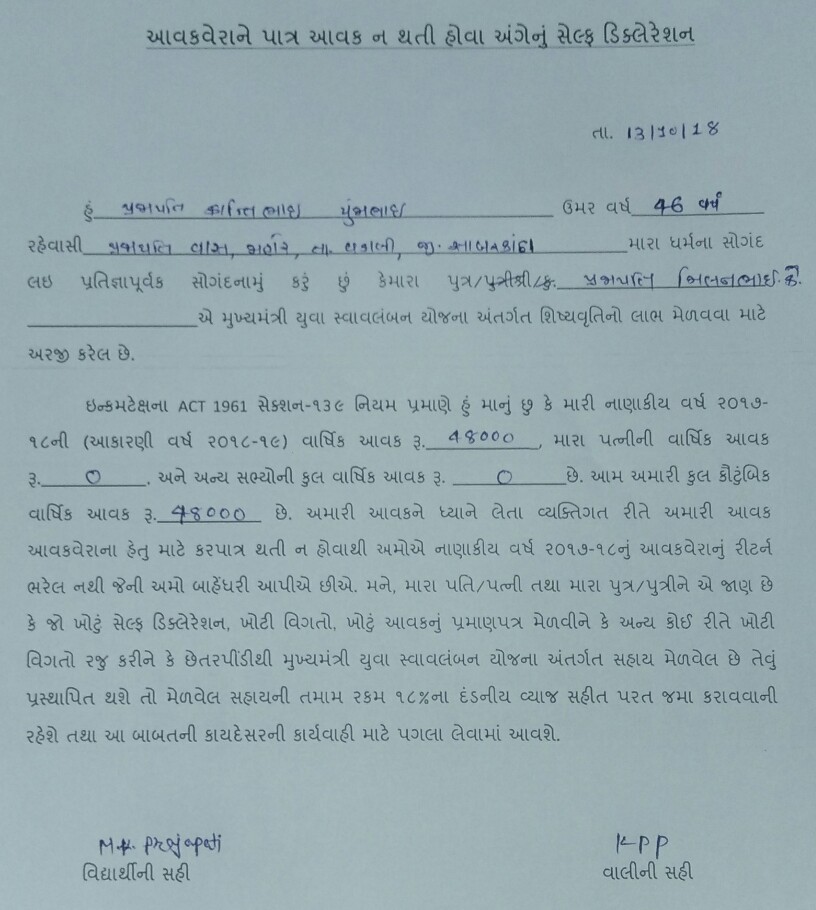 આવકવેરાને પાત્ર આવક ન થતી હોવા અંગેનું સેલ્ફ ડિક્લેરેશન
તા. 13/10/18
હું પ્રજાપતિ કાન્તિભાઇ પુંજાભાઇ ઉમર વર્ષ 46 વર્ષ
રહેવાસી પ્રજાપતિ વાસ, તા. વડાલી, જી. સાબરકાંઠા મારા ધર્મના સોગંદ
લઇ પ્રતિજ્ઞાપૂર્વક સોગંદનામું કરું છું કેમારા પુત્ર/પુત્રીશ્રી/કુ. પ્રજાપતિ મિલનભાઇ. કે.
એ મુખ્યમંત્રી યુવા સ્વાવલંબન યોજના અંતર્ગત શિષ્યવૃતિનો લાભ મેળવવા માટે
અરજી કરેલ છે.
ઇન્કમટેક્ષના ACT 1961 સેક્શન-૧૩૯ નિયમ પ્રમાણે હું માનું છુ કે મારી નાણાકીય વર્ષ ૨૦૧૭-
૧૮ની (આકારણી વર્ષ ૨૦૧૮-૧૯) વાર્ષિક આવક રૂ. 48000, મારા પત્નીની વાર્ષિક આવક
રૂ. 0, અને અન્ય સભ્યોની કુલ વાર્ષિક આવક રૂ. 0 છે. આમ અમારી કુલ કૌટુંબિક
વાર્ષિક આવક રૂ. 48000 છે. અમારી આવકને ધ્યાને લેતા વ્યક્તિગત રીતે અમારી આવક
આવકવેરાના હેતુ માટે કરપાત્ર થતી ન હોવાથી અમોએ નાણાકીય વર્ષ ૨૦૧૭-૧૮નું આવકવેરાનું રીટર્ન
ભરેલ નથી જેની અમો બાહેંધરી આપીએ છીએ. મને, મારા પતિ/પત્ની તથા મારા પુત્ર/પુત્રીને એ જાણ છે
કે જો ખોટું સેલ્ફ ડિક્લેરેશન, ખોટી વિગતો, ખોટું આવકનું પ્રમાણપત્ર મેળવીને કે અન્ય કોઈ રીતે ખોટી
વિગતો રજુ કરીને કે છેતરપીંડીથી મુખ્યમંત્રી યુવા સ્વાવલંબન યોજના અંતર્ગત સહાય મેળવેલ છે તેવું
પ્રસ્થાપિત થશે તો મેળવેલ સહાયની તમામ રકમ ૧૮%ના દંડનીય વ્યાજ સહીત પરત જમા કરાવવાની
રહેશે તથા આ બાબતની કાયદેસરની કાર્યવાહી માટે પગલા લેવામાં આવશે.
M.K. Prajapati KPP
વિદ્યાર્થીની સહી વાલીની સહી